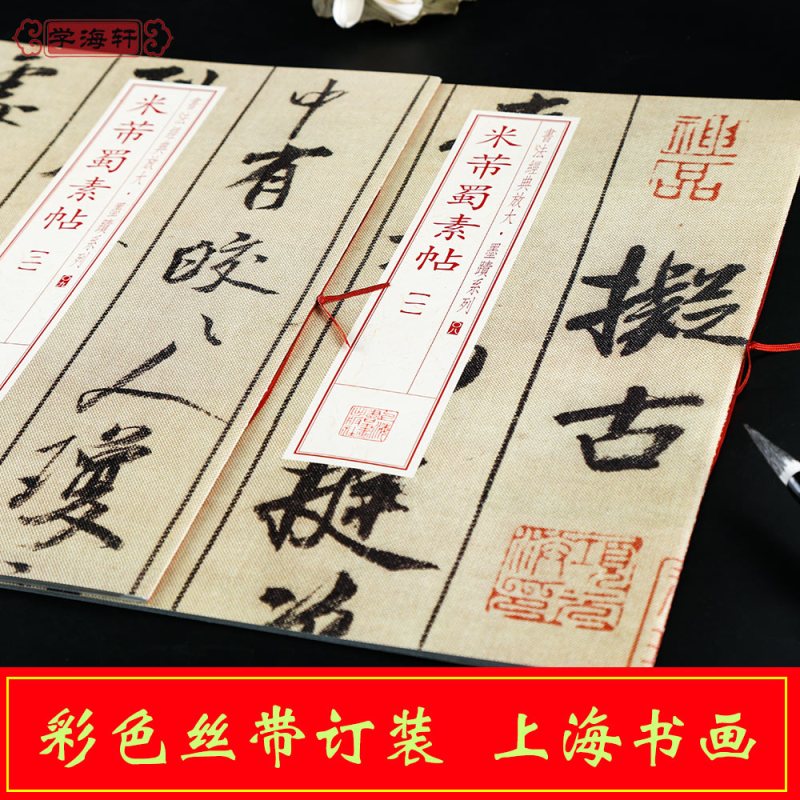 学海轩
書法經典放大·墨蹟系列
米芾蜀素帖
〔二〕
中有皎〻人瓊
書法經典放大·墨蹟系列
米芾蜀素帖
〔一〕
挺
神品
擬古
彩色丝带订装 上海书画